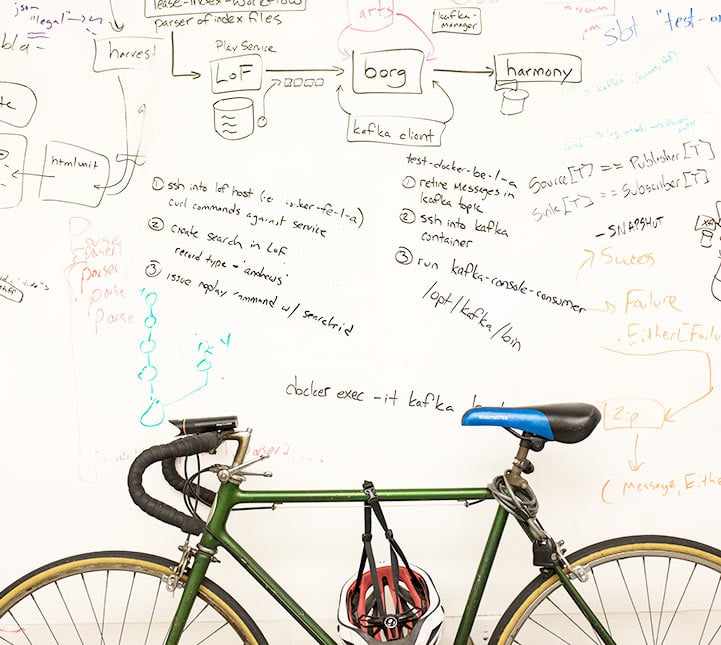 json
"legal" →
lease-index-workflow
parser of index files
arts
kafka-
manager
sbt "test-on
bla-
harvest
Play Service
LoF
borg
harmony
kafka client
htmlunit
① ssh into lof host
curl commands against service
② create search in LoF
record type - 'andrews'
③ issue replay command w/ searchrid
test-docker-be-1-a
① retire messages in
kafka topic
② ssh into kafka
container
③ run kafka-console-consumer
/opt/kafka/bin
docker exec -it kafka
Source[T] == Publisher[T]
Sink[T] == Subscriber[T]
-SNAPSHOT
Success
Failure
Either[Failu
Zip
(Message, Eithe
Parse
Parser
Parser
Parse
Parse